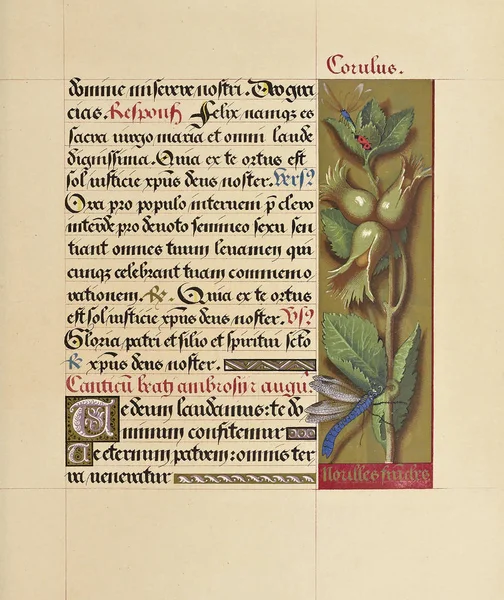 Corulus.
domine miserere nostri. Deo gra
cias. Respons Felix namque es
sacra virgo maria et omni laude
dignissima. Quia ex te ortus est
sol iusticie xpus deus noster. Vers?
Ora pro populo interueni p clero
intede pro deuoto femineo sexu sen
tiant omnes tuum leuamen qui
cunque celebrant tuam commemo
rationem. R. Quia ex te ortus
est sol iusticie xpus deus noster. Vs?
Gloria patri et filio et spiritui scto
R xpus deus noster.
Canticu beatj ambrosij et augu.
Te deum laudamus: te do
minum confitemur
Te eternum patrem: omnis ter
ra ueneratur
Noixilles